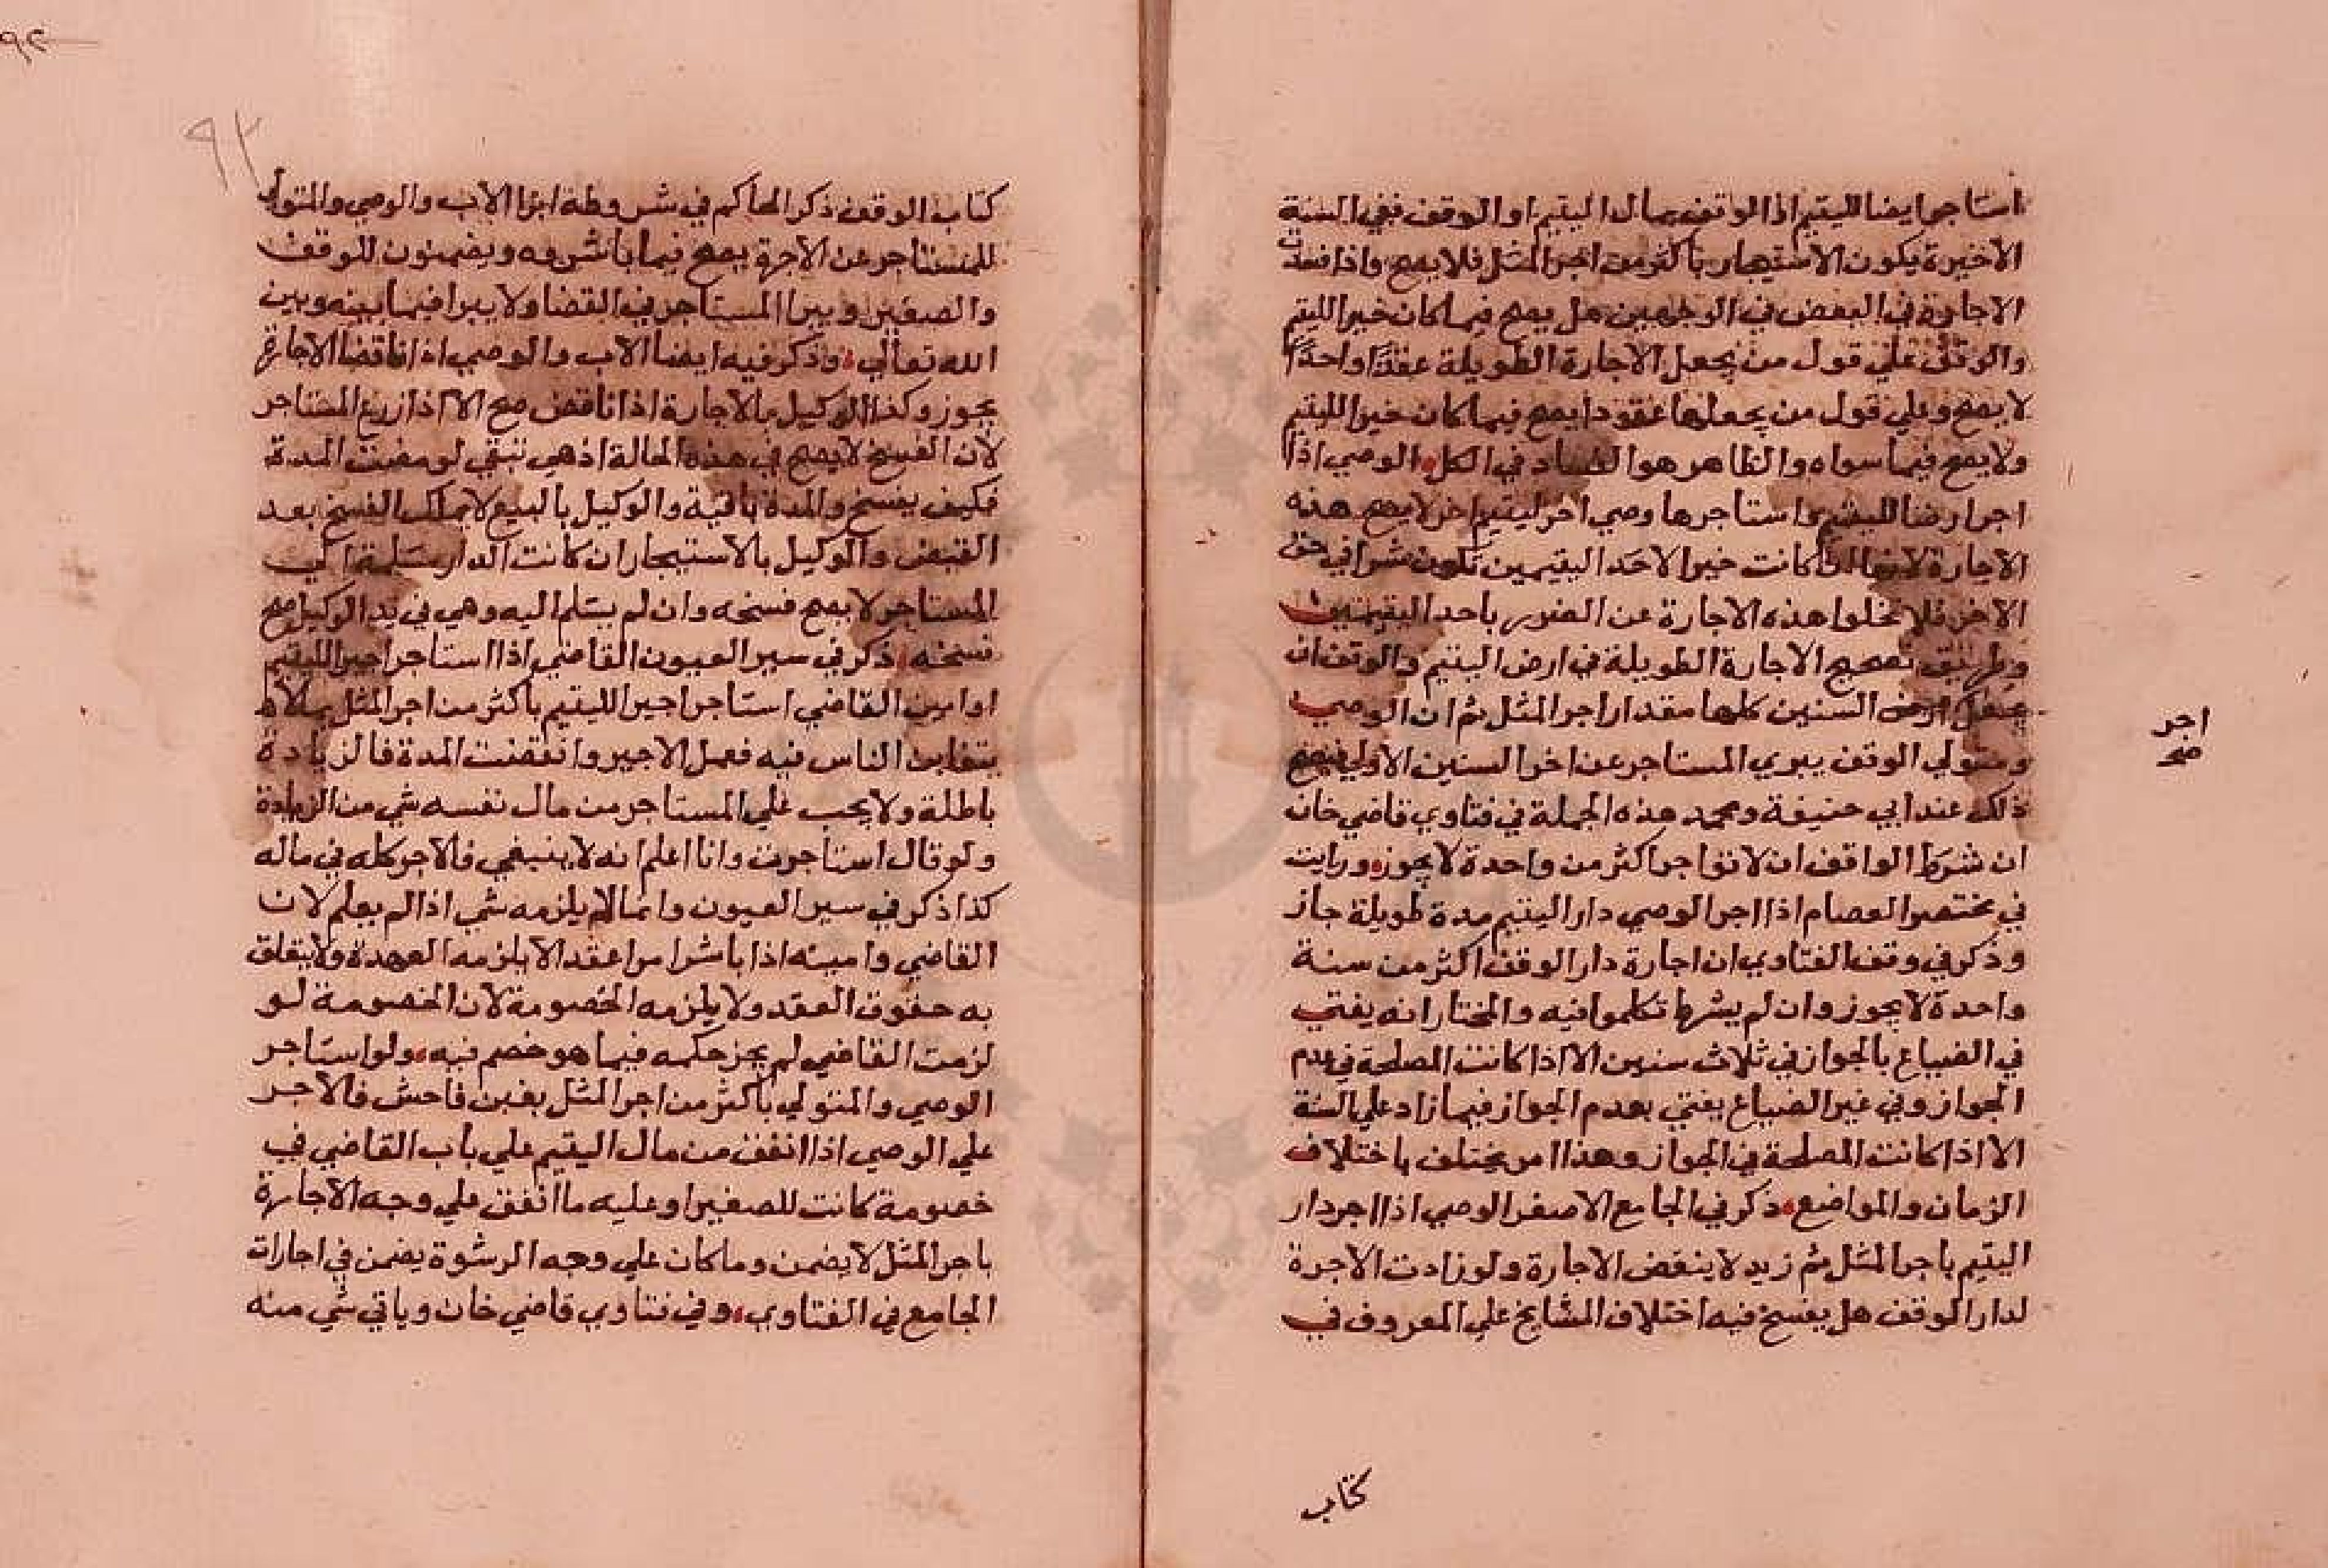 استاجر ايضا لليتيم اذا الوقف بمال اليتيم او الوقف ففي السنة
الاخيرة يكون الاستيجار باكثر من اجر المثل فلا يصح واذا فسدت
الاجارة في البعض في الوجهين هل يصح فيما كان خيرا لليتيم
والوقف علي قول من يجعل الاجارة الطويلة عقدا واحدا
لا يصح وعلي قول من يجعلها عقودا يصح فيما كان خيرا لليتيم
ولا يصح فيما سواه والظاهر هو الفساد في الكل الوصي اذا
اجر ارضا لليتيم واستاجرها وصي اخر ليتيم اخر لا يصح هذه
الاجارة لانها ان كانت خيرا لاحد اليتيمين تكون شرا في حق
الاخر فلا تخلوا هذه الاجارة عن الضرر باحد اليتيمين
وطريق تصحيح الاجارة الطويلة في ارض اليتيم والوقف ان
يجعل السنين كلها مقدار اجر المثل ثم ان الوصي
اجر
صح
ومتولي الوقف يبري المستاجر عن اجر السنين الاولي فيصح
ذلك عند ابي حنيفة ومحمد هذه الجملة في فتاوي قاضي خان
ان شرط الواقف ان لا تؤاجر اكثر من واحدة لا يجوز ورايت
في مختصر العصام اذا اجر الوصي دار اليتيم مدة طويلة جاز
وذكر في وقف الفتاوي ان اجارة دار الوقف اكثر من سنة
واحدة لا يجوز وان لم يشرط تكلموا فيه والمختار انه يفتي
في الضياع بالجواز في ثلاث سنين الا اذا كانت المصلحة في عدم
الجواز وفي غير الضياع يفتي بعدم الجواز فيما زاد علي السنة
الا اذا كانت المصلحة في الجواز وهذا امر يختلف باختلاف
الزمان والمواضع ذكر في الجامع الاصغر الوصي اذا اجر دار
اليتيم باجر المثل ثم زيد لا ينقض الاجارة ولو زادت الاجرة
لدار الوقف هل يفسخ فيه اختلاف المشايخ علي المعروف في
كتاب
٩٢
كتاب الوقف ذكر الحاكم في شروطة ابرا الاب والوصي والمتولي
للمستاجر عن الاجرة يصح فيما باشروه ويضمنون للوقف
والصغير ويبرا المستاجر في القضا ولا يبرا فيما بينه وبين
الله تعالي وذكر فيه ايضا الاب والوصي اذا ناقضا الاجارة
يجوز وكذا الوكيل بالاجارة اذا ناقض صح الا اذا زرع المستاجر
لان الفسخ لا يصح في هذه الحالة اذ هي تبقي لو مضت المدة
فكيف يفسخ والمدة باقية والوكيل بالبيع لا يملك الفسخ بعد
القبض والوكيل بالاستيجار ان كانت الدار
المستاجر لا يصح فسخه وان لم يسلم اليه وهي في يد الوكيل صح
فسخه ذكر في سير العيون القاضي اذا استاجر اجيرا لليتيم
او امين القاضي استاجر اجيرا لليتيم باكثر من اجر المثل بما لا
يتغابن الناس فيه فعمل الاجير وانقضت المدة فالزيادة
باطلة ولا يجب علي المستاجر من مال نفسه شي من الزيادة
ولو قال استاجرت وانا اعلم انه لا ينبغي فالاجر كله في ماله
كذا ذكر في سير العيون وانما لم يلزمه شي اذا لم يعلم لان
القاضي وامينه اذا باشرا مرا عقد الا يلزمه العهدة ولا يتعلق
به حقوق العقد ولا يلزمه الخصومة لان الخصومة لو
لزمت القاضي لم يجز حكمه فيما هو خصم فيه ولو استاجر
الوصي والمتولي باكثر من اجر المثل بغبن فاحش فالاجر
علي الوصي اذا انفق من مال اليتيم علي باب القاضي في
خصومة كانت للصغير او عليه ما انفق علي وجه الاجارة
باجر المثل لا يضمن وما كان علي وجه الرشوة يضمن في اجارات
الجامع في الفتاوي وفي فتاوي قاضي خان وياتي شي منه